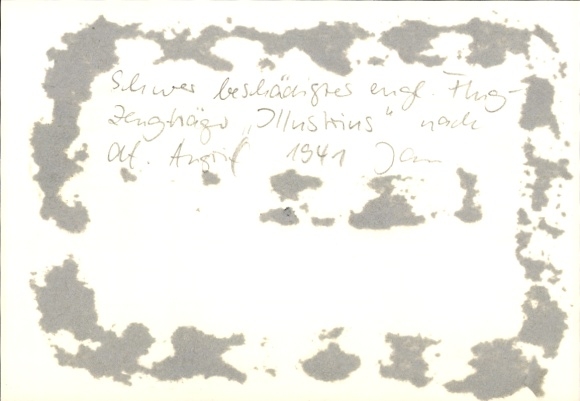 Schwer beschädigtes engl. Flug-
zeugträger „Illustrius" nach
dt. Angriff 1941 Jan